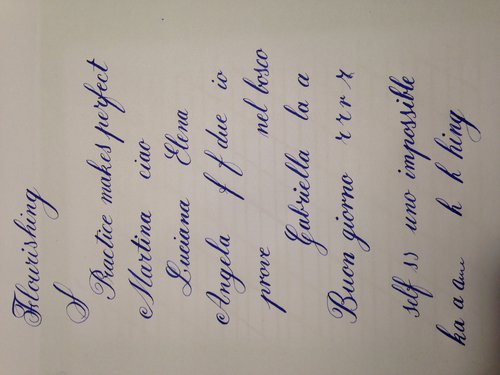 Flourishing
S Practice makes perfect
Martina ciao
Luciana Elena
Angela f f due io
prove nel bosco
Gabriella la a
Buon giorno r r r r
self ss uno impossible
ka a a h h hing